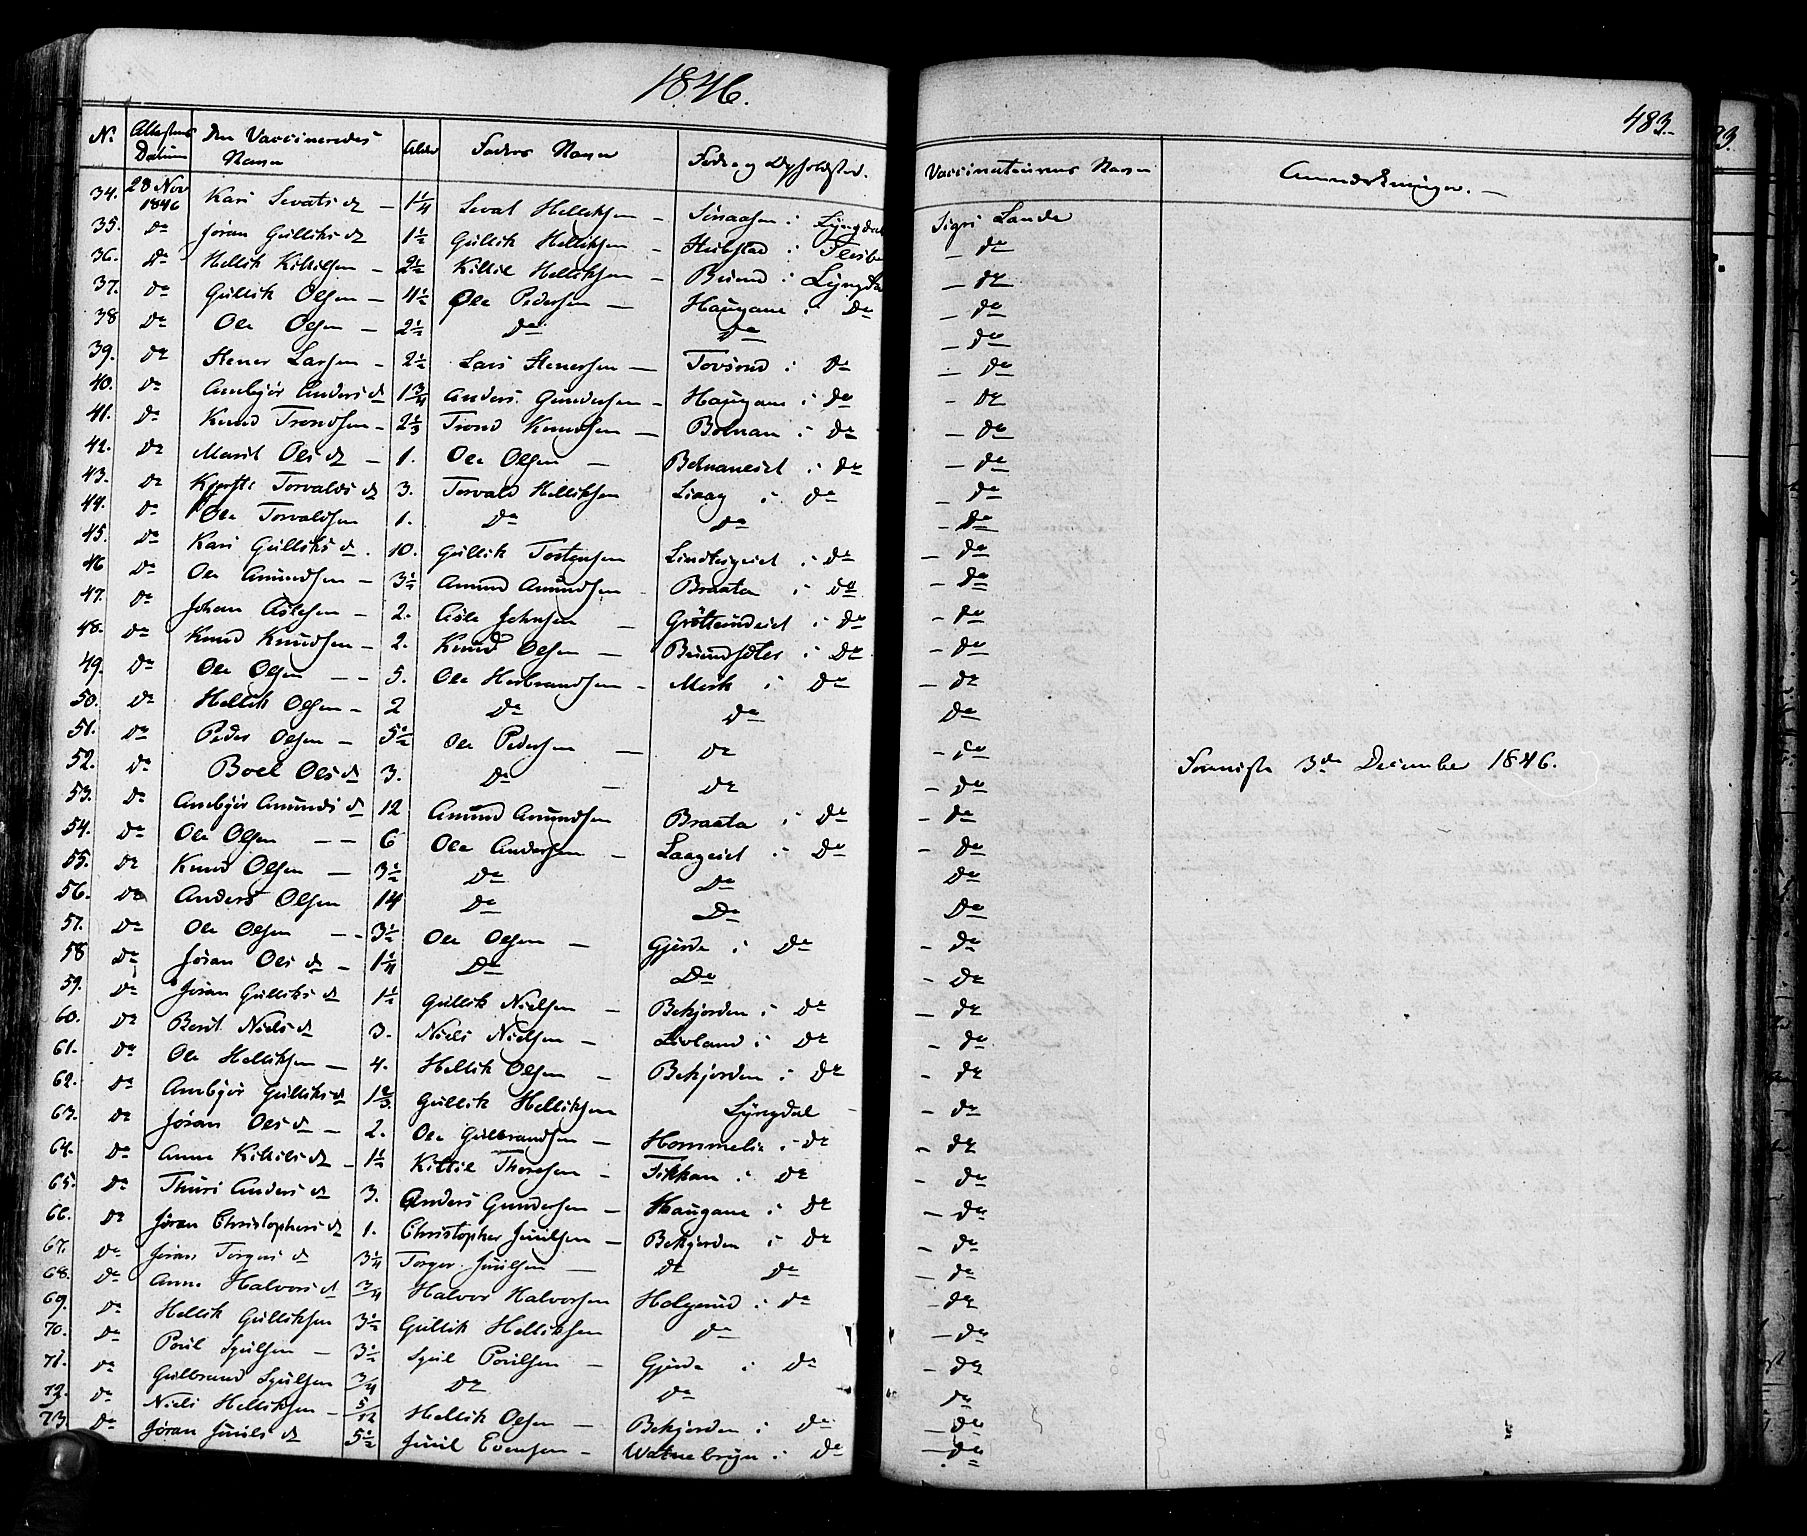 1846.
483.
N. Attestens Datum Den Vaccineredes Navn Alder Faders Navn Føde og Opholdsted. Vaccinateurens Navn Anmærkninger. —
34. 28 Nov 1846 Kari Sevats d — 1¼ Sevat Helliksen — i Lyngdal Sigri Lande
35. Do Jøran Gulliks d 1½ Gullik Helliksen — i — do
36. Do Hellik Kittilsen — 2½ Kittil Helliksen — i Lyngdal — do
37. Do Gullik Olsen — 4½ Ole Pedersen — Haugane i Do — do
38 Do Ole Olsen — 2½ Do Do — do
39. Do Stener Larsen — 2½ Lars Stenersen — i Do — do
40. Do Ambjør Anders d 1¾ Anders Gundersen — Haugane i Do — do
41. Do Knud Trondsen — 2⅓ Trond Knudsen — Botnan i Do — do
42. Do Marit Ols d — 1. Ole Olsen — Botnaneiet i Do — do
43. Do Torvalds d 3. Torvald Helliksen Liaag i Do — do
44. Do Ole Torvaldsen 1. Do Do — do
45. Do Kari Gulliks d. 10. Gullik Tostensen Do — do
46 Do Ole Amundsen — 3½ Amund Amundsen — Braata i Do — do
47. Do Johan Aslesen — 2. Asle Johnsen — i Do — do
48. Do Knud Knudsen — 2. Knud Olsen — i Do — do
49. Do Ole Olsen — — 5. Ole Herbrandsen — Mørk i Do — do
50. Do Hellik Olsen — 2 Do Do do
51. Do Peder Olsen — 5½ Ole Pedersen — Do — do
52. Do Boel Ols d 3. Do — Do — do
Forrige 3de December 1846.
53. Do Ambjør Amunds d 12 Amund Amundsen Braata i Do — do
54. Do Ole Olsen — — 6 Ole Andersen — Laageiet i Do — do
55. Do Knud Olsen — 3½ Do Do do
56. Do Anders Olsen 14 Do Do do
57. Do Ole Olsen — — 3½ Ole Olsen — Gjerde i Do — do
58 Do Jøran Ols d — 1¼ Do Do — do
59. Do Jøran Gulliks d 1½ Gullik Nielsen — Bekjorden i Do — do
60. Do Berit Niels d 3. Niels Nielsen — Livland i Do — do
61. Do Ole Helliksen — 4. Hellik Olsen — Bekjorden i Do — do
62. Do Ambjør Gulliks d 1⅔ Gullik Helliksen Lyngdal — — do
63. Do Jøran Ols d — 2. Ole Gulbrandsen — Hommelie i Do — do
64. Do Anne Kittils d — 1½ Kittil Thoresen — Fikkan i Do — do
65. Do Thuri Anders d 3. Anders Gundersen — Haugane i Do — do
66. Do Jøran Christophers d 1. Christopher Juulsen — Bekjorden i Do — do
67. Do Jøran Torgers d 3¼ Torger Juulsen — Do Do — do
68. Do Anne Halvors d ¾ Halvor Halvorsen Holgerud i Do — do
69. Do Hellik Gulliksen 3½ Gullik Helliksen Do — do
70. Do Poul Sjulsen — 3½ Sjul Poulsen — Gjerde i Do — do
71. Do Gulbrand Sjulsen ¾ Do Do do
72. Do Niels Helliksen — 5/12 Hellik Olsen — Bekjorden i Do — do
73. Do Jøran Juuls d 5½ Juul Evensen — Watnebryn i Do — do